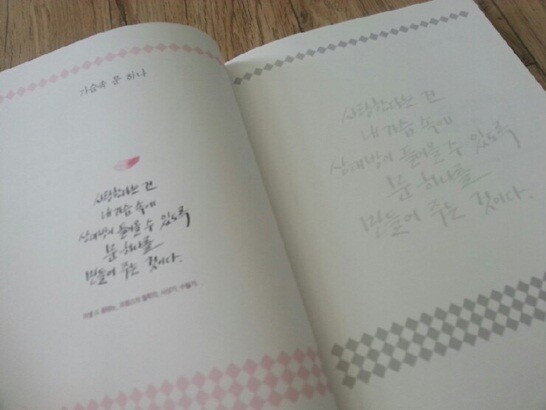 가슴속 문 하나
사랑한다는 건
내 가슴 속에
상대방이 들어올 수 있도록
문 하나를
만들어 주는 것이다.
사랑한다는 건
내 가슴 속에
상대방이 들어올 수 있도록
문 하나를
만들어 주는 것이다.